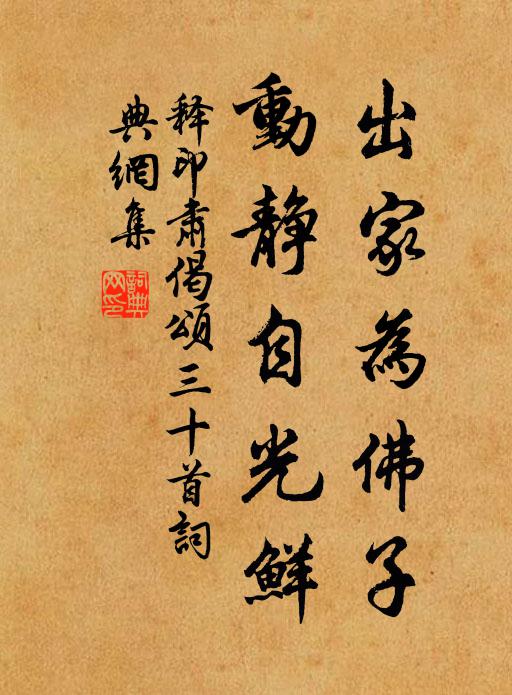 出家為佛子
動静自光鮮
释印肅偈頌三十首詞
典網集
詞典网印